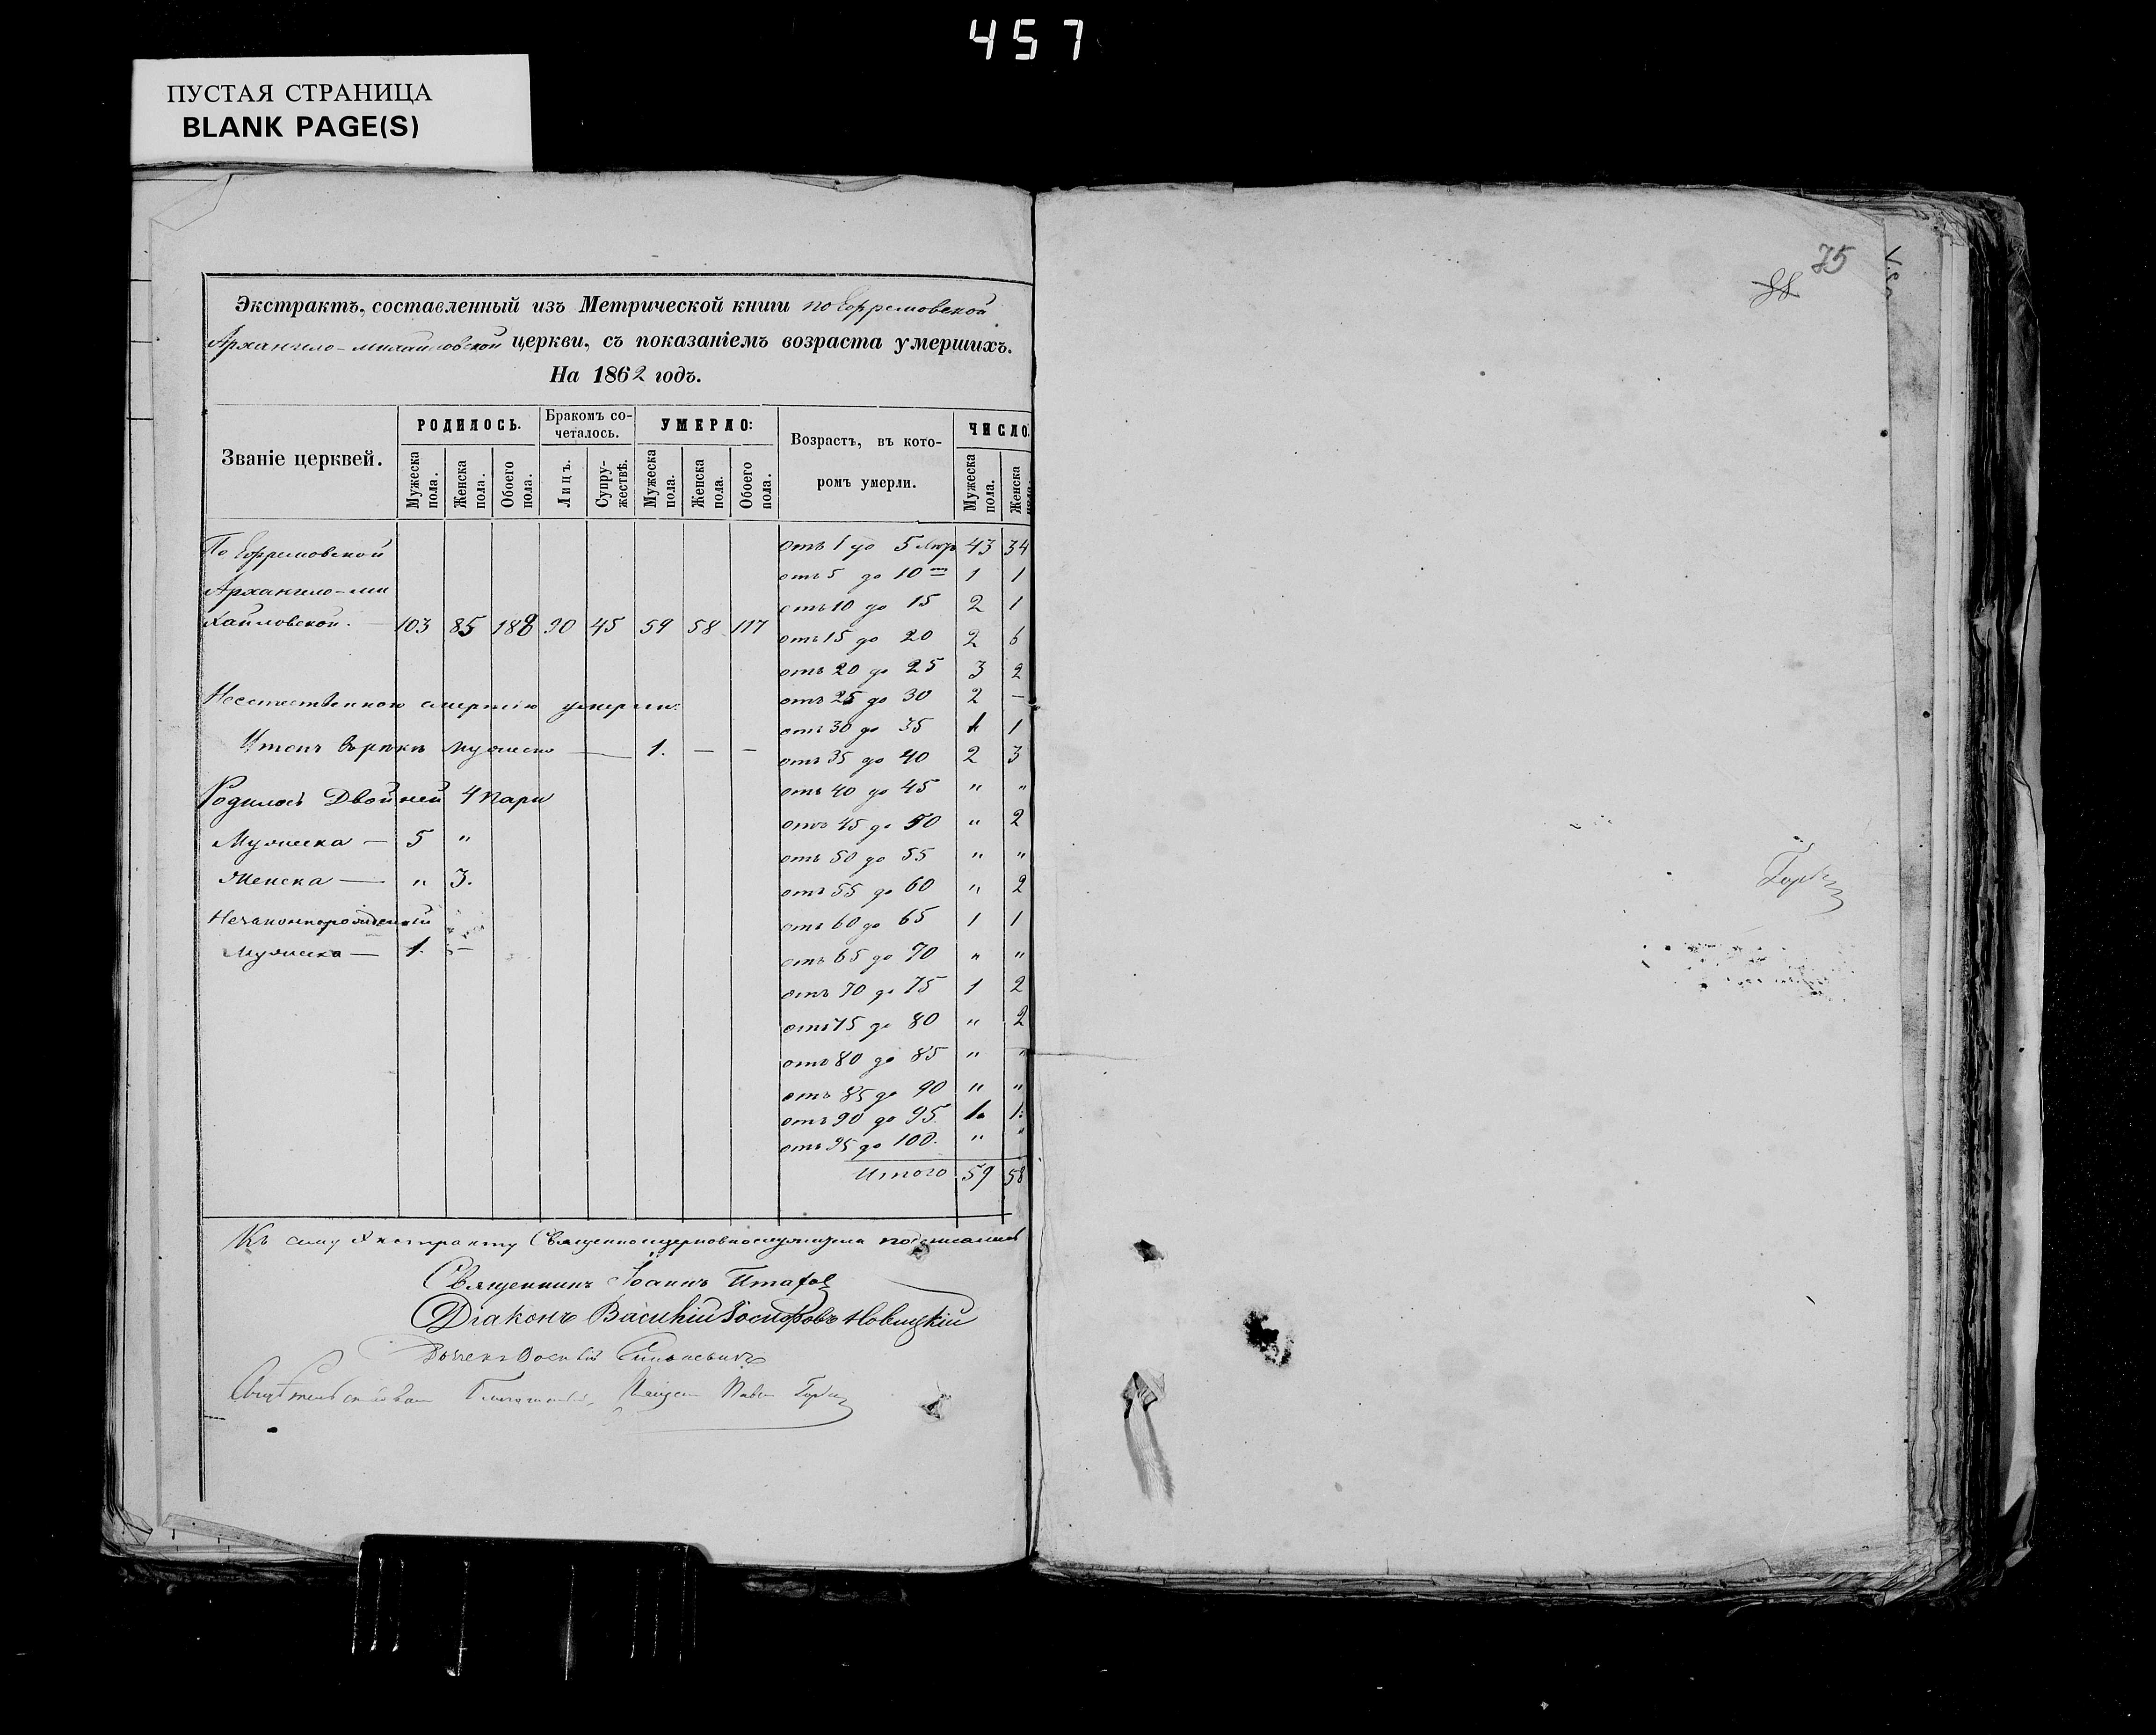 457
ПУСТАЯ СТРАНИЦА
BLANK PAGE(S)
Экстрактъ, составленный изъ Метрической книги по Ефремовской
Архангело-михайловской церкви, съ показаніемъ возраста умершихъ.
На 1862 годъ.
Званіе церквей.
РОДИЛОСЬ.
Бракомъ со-
четалось.
УМЕРЛО:
Возрастъ, въ кото-
ромъ умерли.
ЧИСЛО.
Мужеска пола.
Женска пола.
Обоего пола.
Лицъ.
Супру-
жествѣ.
Мужеска пола.
Женска пола.
Обоего пола.
Мужеска пола.
Женска пола.
По Ефремовской
Архангело-ми
хайловской. — 103 85 188 90 45 59 58 117
отъ 1 до 5 43 34
отъ 5 до 10 1 1
отъ 10 до 15 2 1
отъ 15 до 20 2 6
отъ 20 до 25 3 2
отъ 25 до 30 2 —
отъ 30 до 35 1 1
отъ 35 до 40 2 3
отъ 40 до 45 " "
отъ 45 до 50 " 2
отъ 50 до 55 " "
отъ 55 до 60 " 2
отъ 60 до 65 1 1
отъ 65 до 70 " "
отъ 70 до 75 1 2
отъ 75 до 80 " 2
отъ 80 до 85 " "
отъ 85 до 90 " "
отъ 90 до 95 1. 1.
отъ 95 до 100. " "
Итого 59 58
Неестественною смертію умерли:
мужеска — 1. — —
Родилось Двойней 4 пары
Мужеска — 5 "
Женска — " 3.
Незаконнорожденный
Мужеска — 1. —
Къ сему Экстракту Священноцерковнослужители подписались
Священникъ Іоаннъ
Діаконъ Василій Іосифовъ Новицкій
75
88